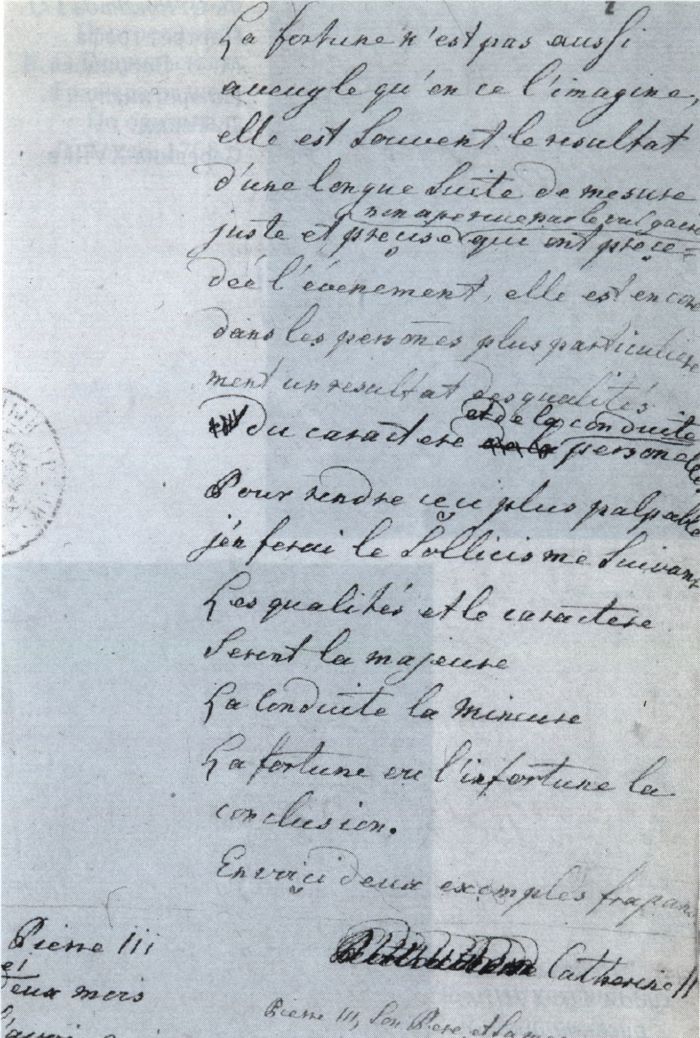 La fortune n'est pas aussi
aveugle qu'on ce l'imagine,
elle est souvent le resultat
d'une longue suite de mesure
non aperçue par le vulgaire
juste et précise qui ont préce=
deé l'évenement, elle est encore
dans les personnes plus particuliere
ment un resultat des qualités
du caractere et de la conduite personelle
Pour rendre ceci plus palpable
j'en ferai le sollicisme suivant
Les qualités et le caractere
seront la majeure
La Conduite la Mineure
La fortune ou l'infortune la
conclusion.
En voici deux exemples frapans
Catherine II
Pierre III
deux mois
Pierre III, Son Pere, et sa mere